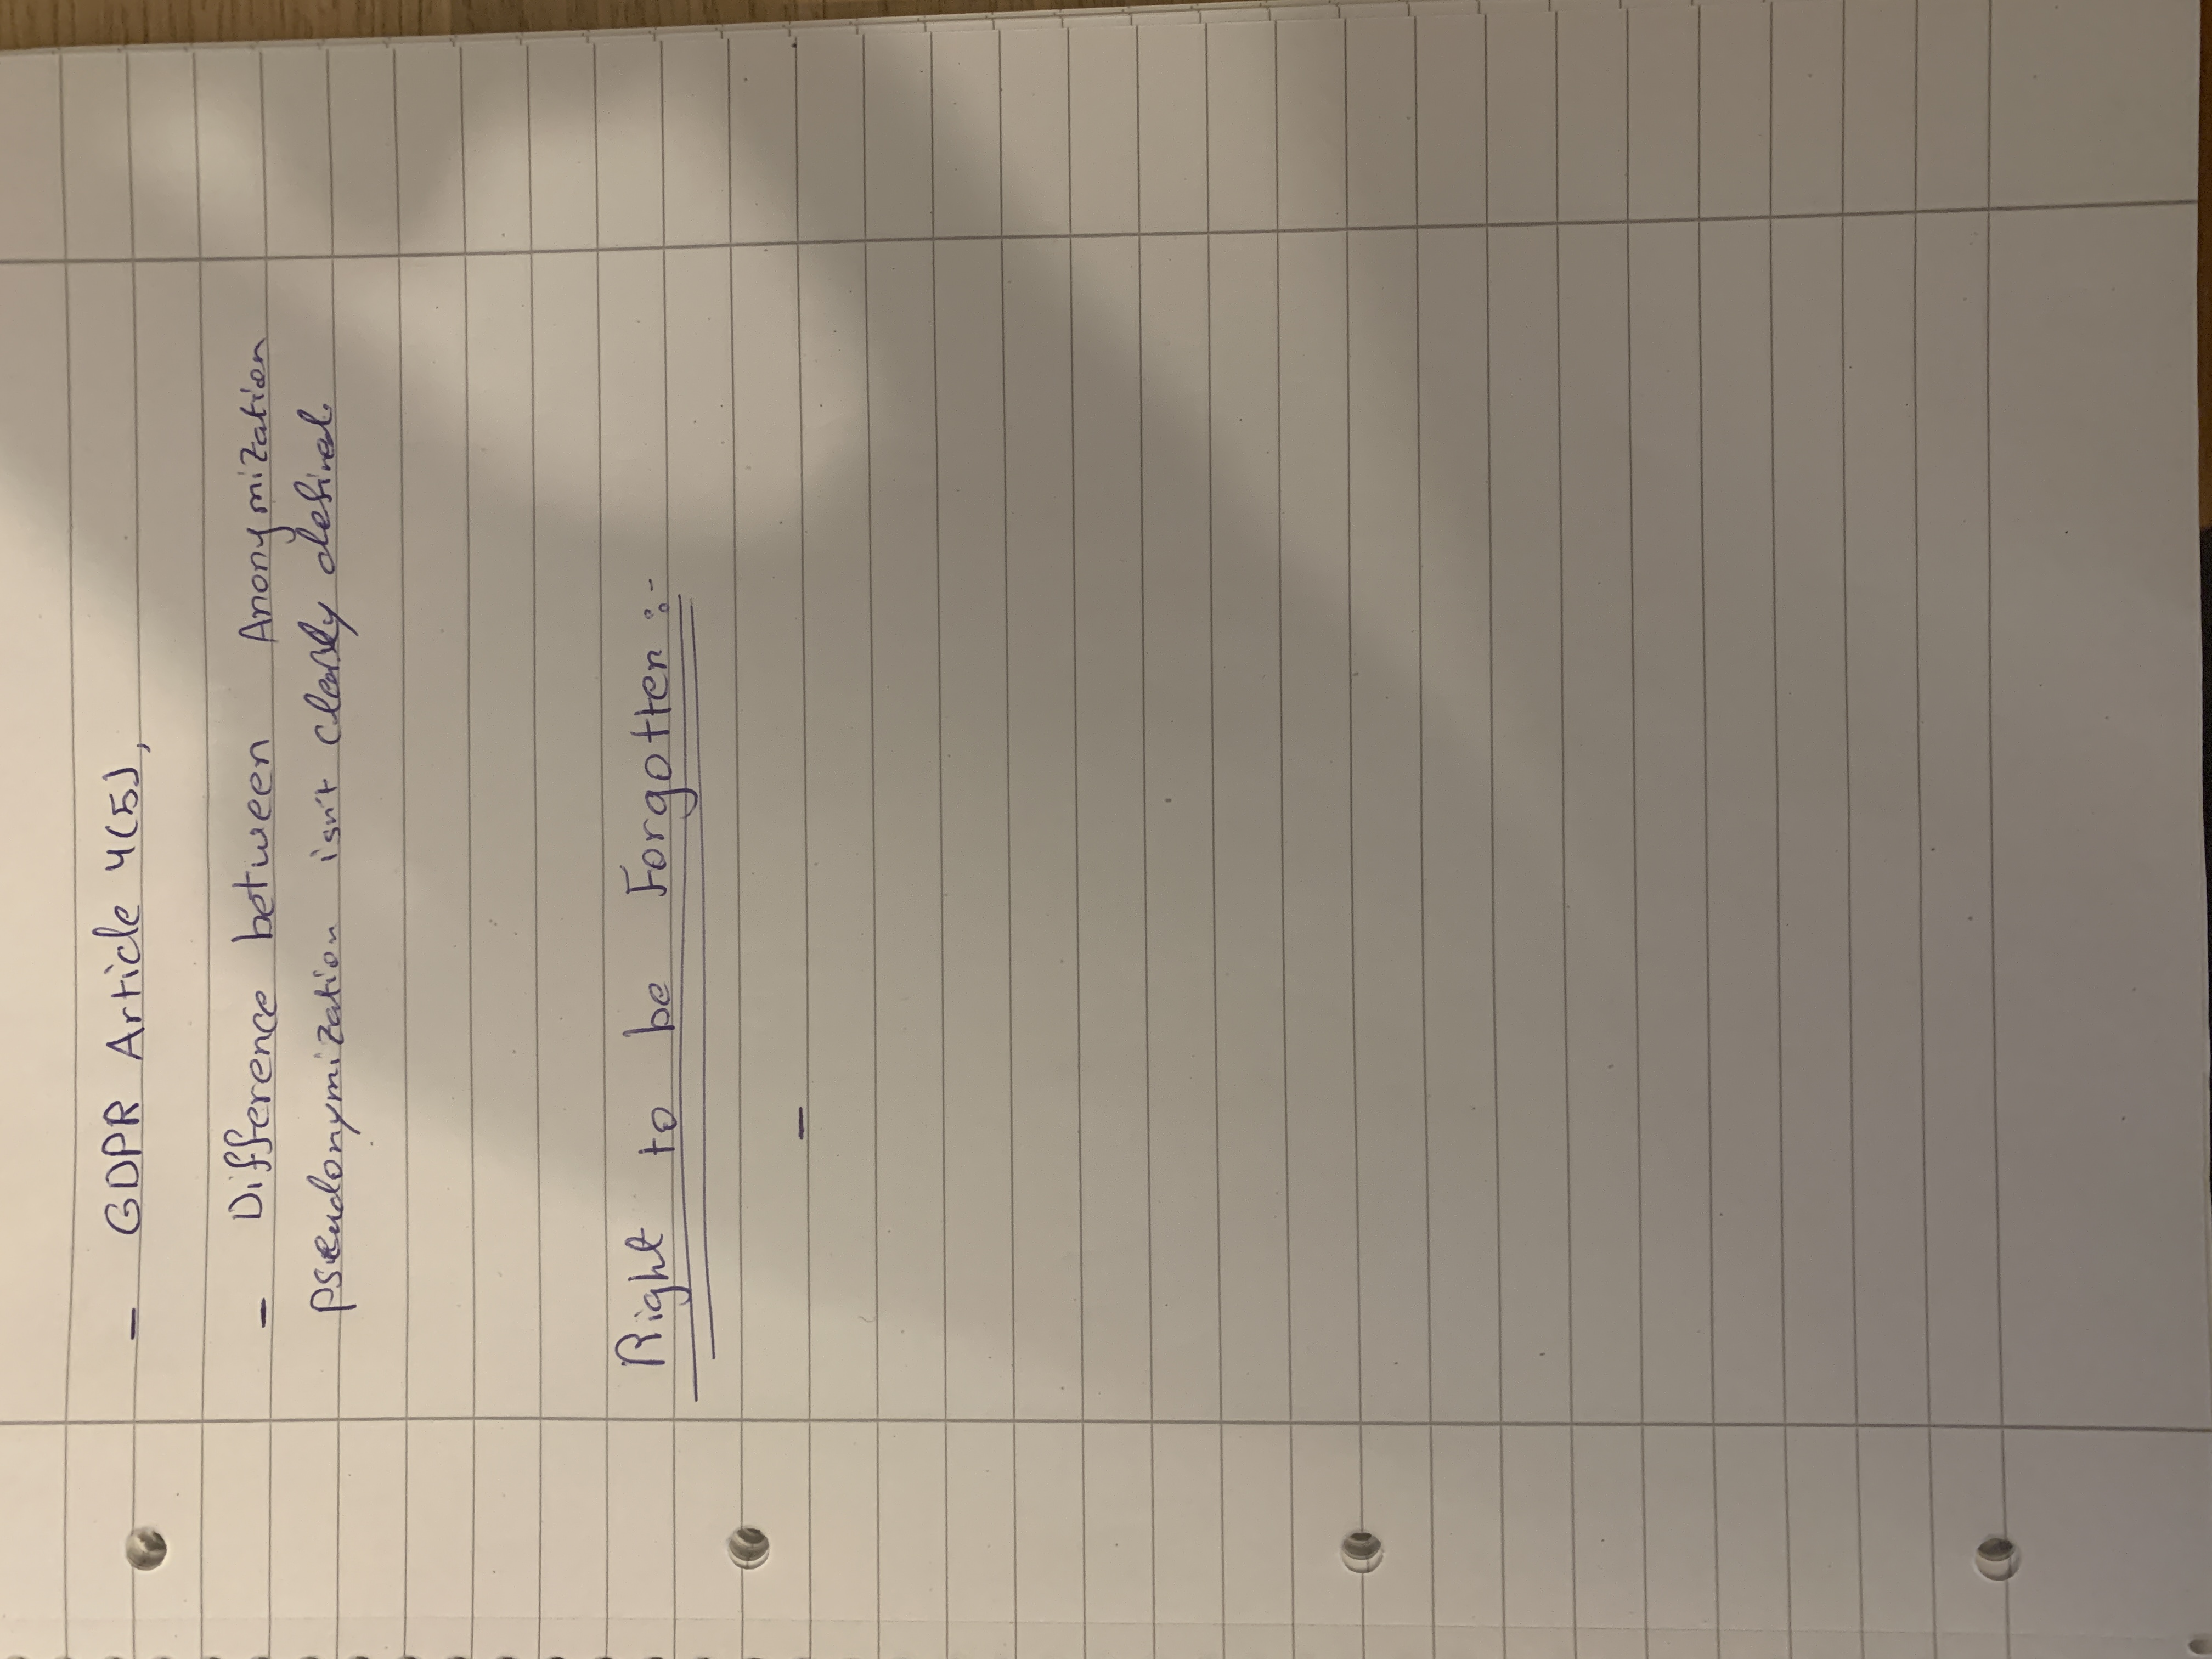 - GDPR Article 4(5),
- Difference between Anonymization
pseudonymization isn't clearly defined.
Right to be Forgotten :-
-